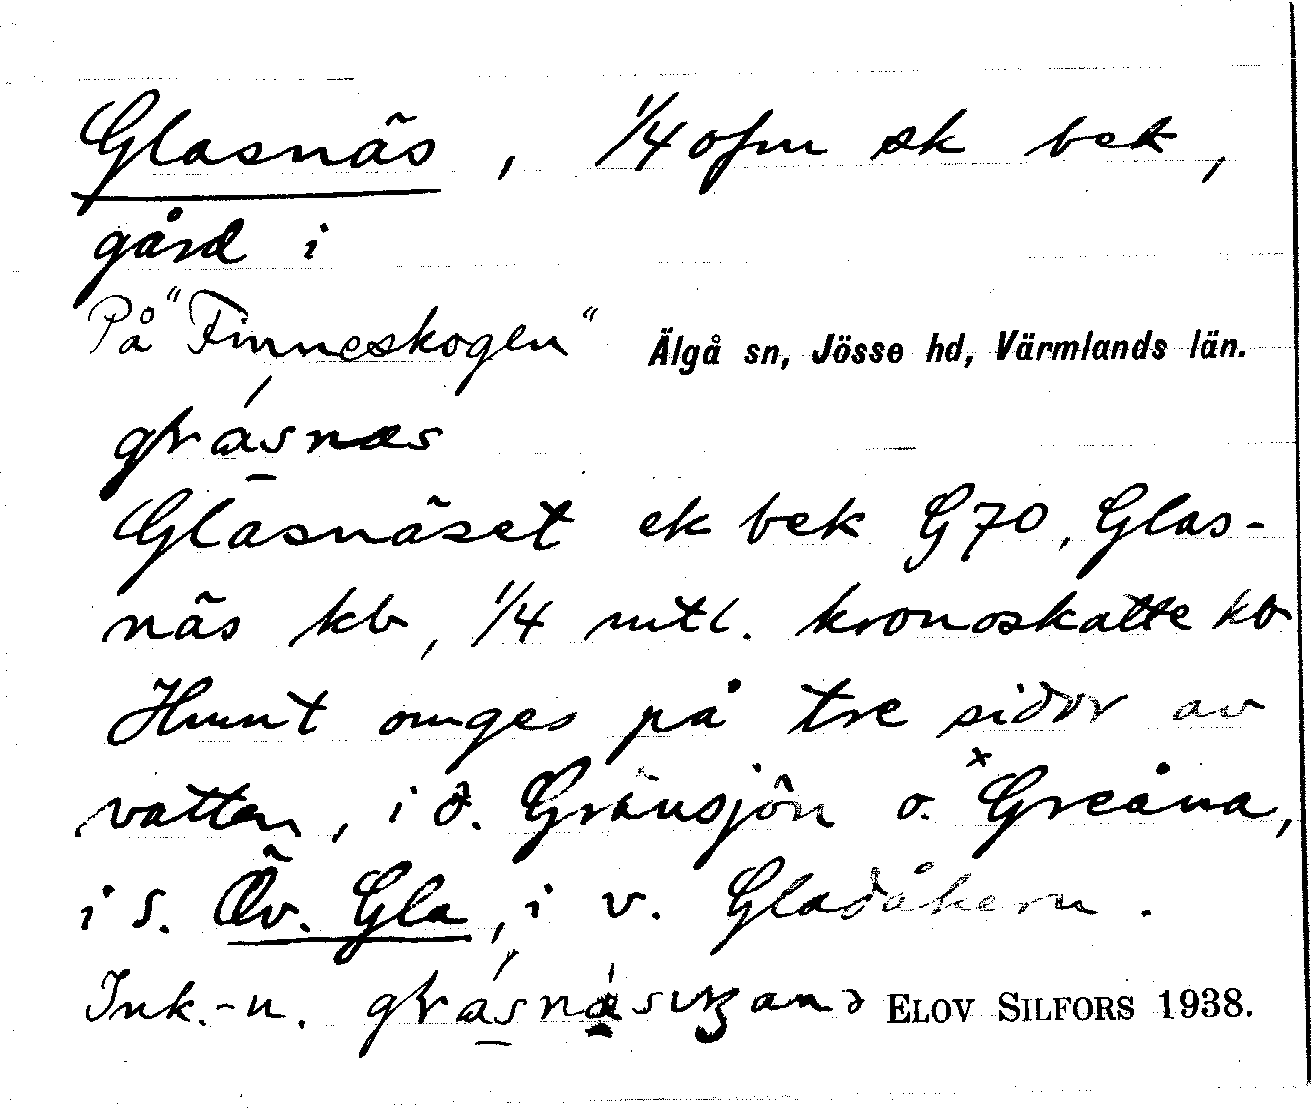 Glasnäs, 1/4 ofm sk bek,
gård i
På "Finneskogen" Älgå sn, Jösse hd, Värmlands län.
Glasnäset ek bek G70, Glas-
näs kb, 1/4 mtl. kronoskatte kb
Hmnt omges på tre sidor av
vatten, i ö. Gränsjön o. ˣGreåna,
i s. Öv. Gla, i v. Gladåkern.
Ink.-n. ELOV SILFORS 1938.